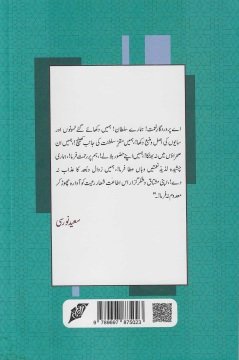 اے پروردگارِ نعمت! ہمارے سلطان! ہمیں دکھائے گئے نمونوں اور
سایوں کی اصل و منبع دکھا! ہمیں مقرِ سلطنت کی جانب کھینچ! ہمیں ان
صحراؤں میں نہ بھٹکا! ہمیں اپنے حضور بلا لے! ہم پر رحمت فرما، ہماری
چشیدہ لذیذ نعمتیں وہاں عطا فرما! ہمیں زوال و بُعد کا عذاب نہ
دے! اپنی مشتاق و شکرگزار اس اطاعت شعار رعیت کو آوارہ چھوڑ کر
معدوم نہ فرما۔"
سعید نورسی
9 789697 875023